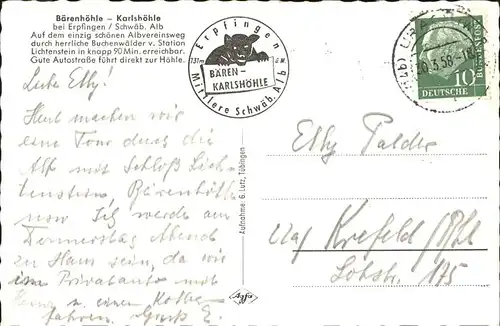 Bärenhöhle – Karlshöhle
bei Erpfingen / Schwäb. Alb
Auf dem einzig schönen Albvereinsweg
durch herrliche Buchenwälder v. Station
Lichtenstein in knapp 90 Min. erreichbar.
Gute Autostraße führt direkt zur Höhle.
Erpfingen
BÄREN-
KARLSHÖHLE
Mittlere Schwäb. Alb
3.58
10
DEUTSCHE
BUNDESPOST
Liebe Elly!
Heut machen wir
eine Tour durch die
Alb mit Schloß Lich-
tenstein, Bärenhöhle
usw. Ich werde am
Donnerstag Abend
zu Haus sein, da wir
im Privatauto mit
u. einem
fahren. Gruß E.
Aufnahme: G. Lutz, Tübingen
Agfa
Elly
Krefeld
175